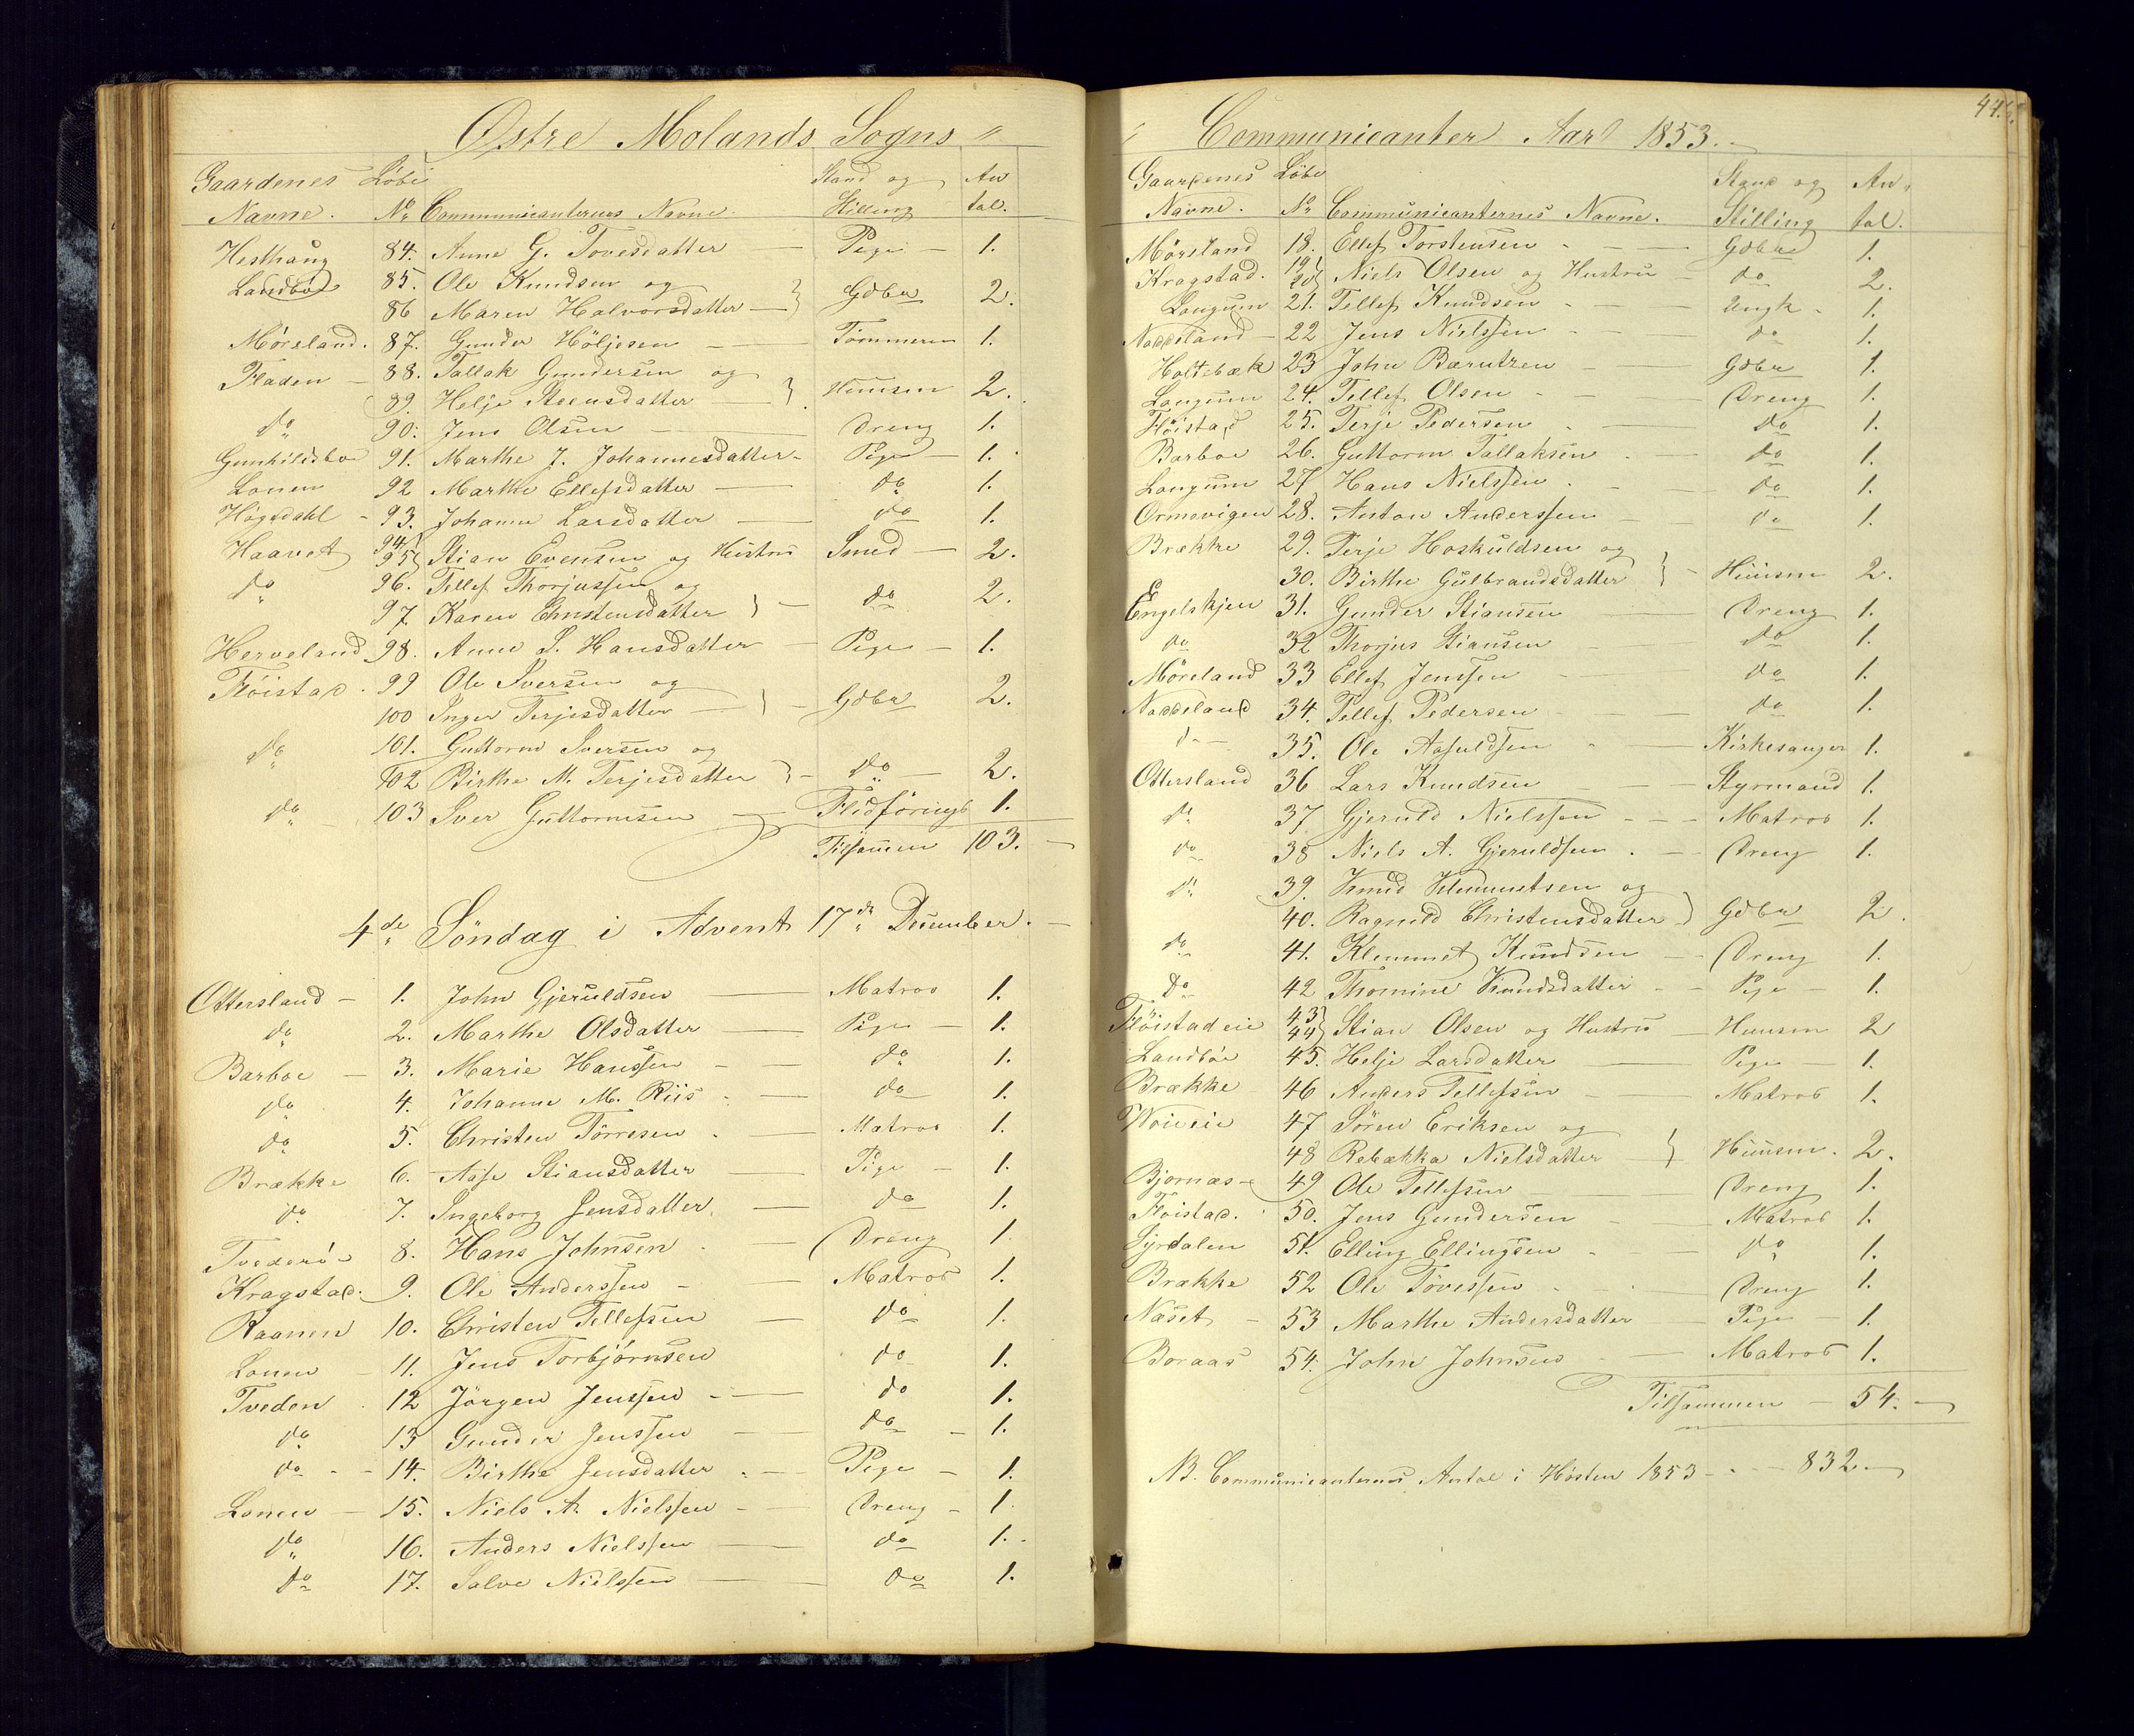 Østre Molands Sogns "
Gaardenes Løbe Stand og An
Navne. No Communicanternes Navne. Stilling tal.
Hesthaug 84. Anne G. Tovesdatter — Pige — 1.
Landbøe 85. Ole Knudsen og
86 Maren Halvorsdatter — } Gdbr 2.
Møreland. 87. Gunder Höljesen — Tömmerm 1.
Fladen — 88. Tallak Gundersen og
89. Helje Steensdatter — } Huusm 2.
do 90. Jens Olsen — Dreng 1.
Gunhildsboe 91. Marthe J. Johannesdatter — Pige — 1.
Lonen 92 Marthe Ellefsdatter — do 1.
Högedahl - 93. Johanne Larsdatter — do 1.
Haavet 94 95} Stian Evensen og Hustru Smed — 2.
do 96. Tellef Thorjussen og
97. Karen Christensdatter } — do 2.
Herveland 98. Anne S. Hansdatter — Pige — 1.
Flöistad. 99 Ole Iversen og
100 Inger Terjesdatter — } — Gdbr 2.
do 101. Guttorm Iversen og
102 Birthe M. Terjesdatter } — do — 2.
do 103 Iver Guttormsen — Flidföring 1.
Tilsammen 103. —
4de Söndag i Advent 17de December. —
Ottersland — 1. John Gjeruldsen — Matros 1.
do 2. Marthe Olsdatter — Pige — 1.
Barboe — 3. Marie Hanssen — do 1.
do 4. Johanne M. Riis — do 1.
do 5. Christen Törresen — Matros 1.
Brække 6. Aase Stiansdatter — Pige — 1.
do 7. Ingeborg Jensdatter — do 1.
Tvederö - 8. Hans Johnsen — Dreng 1.
Kragstad. 9. Ole Anderssen — Matros 1.
Raanen 10. Christen Tellefsen — do 1.
Lonen — 11. Jens Torbjörnsen do 1.
Tveden 12 Jörgen Jenssen — do 1.
do 13 Gunder Jenssen — do — 1.
do — 14. Birthe Jensdatter — Pige — 1.
Lonen — 15. Niels A. Nielssen — Dreng — 1.
do 16. Anders Nielssen — do 1.
do 17. Salve Nielssen — do 1.
44.
" Communicanter Aar 1853. —
Gaardenes Løbe Stand og An-
Navne. No Communicanternes Navne. Stilling tal.
Møreland 18. Ellef Torstensen — Gdbr 1.
Kragstad. 19 20} Niels Olsen og Hustru — do 2.
Longum 21. Tellef Knudsen — Ungk - 1.
Naddeland — 22 Jens Nielssen — do 1.
Holtebæk 23 John Berntzen — Gdbr 1.
Longum 24. Tellef Olsen — Dreng 1.
Flöistad 25. Terje Pedersen — do 1.
Barboe 26. Guttorm Tallaksen — do 1.
Longum 27 Hans Nielssen — do 1.
Ormevigen 28. Anton Anderssen — do 1.
Brække 29. Terje Hoskuldsen og
30. Birthe Gulbrandsdatter } — Huusm 2.
Engelskjen 31. Gunder Stiansen — Dreng 1.
do 32 Thorjus Stiansen — do 1.
Møreland 33 Ellef Jenssen — do 1.
Naddeland 34. Tellef Pedersen — do 1.
do 35. Ole Aasuldsen — Kirkesanger 1.
Ottersland 36 Lars Knudsen — Styrmand 1.
do 37 Gjeruld Nielssen — Matros 1.
do 38 Niels A. Gjeruldsen — Dreng 1.
do 39. Knud Klemmetsen og
40. Ragnild Christensdatter } Gdbr 2.
do 41. Klemmet Knudsen — Dreng 1.
do 42 Thomine Knudsdatter — Pige — 1.
Flöistadeie 43 44} Stian Olsen og Hustru — Huusm 2
Landböe 45. Helje Larsdatter — Pige — 1.
Brække 46 Anders Tellefsen — Matros 1.
47 Sören Eriksen og
48 Rebekka Nielsdatter } Huusm. 2.
Bjornæs — 49 Ole Tellefsen — Dreng 1.
Flöistad. 50. Jens Gundersen — Matros 1.
Syrdalen 51. Elling Ellingsen — do 1.
Brække 52 Ole Tovessen — Dreng 1.
Næset — 53 Marthe Andersdatter — Pige — 1.
Boraas 54. John Johnsen — Matros 1.
Tilsammen — 54. —
NB. Communicanternes Antal i Høsten 1853 — 832 —